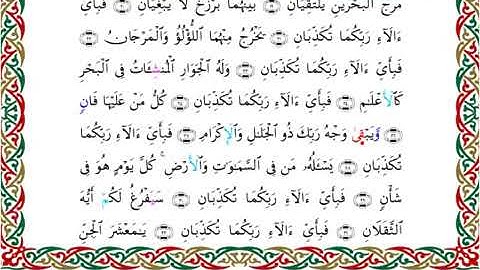 مَرَجَ ٱلۡبَحۡرَيۡنِ يَلۡتَقِيَانِ ۝ بَيۡنَهُمَا بَرۡزَخٞ لَّا يَبۡغِيَانِ ۝ فَبِأَيِّ
ءَالَآءِ رَبِّكُمَا تُكَذِّبَانِ ۝ يَخۡرُجُ مِنۡهُمَا ٱللُّؤۡلُؤُ وَٱلۡمَرۡجَانُ ۝
فَبِأَيِّ ءَالَآءِ رَبِّكُمَا تُكَذِّبَانِ ۝ وَلَهُ ٱلۡجَوَارِ ٱلۡمُنشَـَٔاتُ فِي ٱلۡبَحۡرِ
كَٱلۡأَعۡلَٰمِ ۝ فَبِأَيِّ ءَالَآءِ رَبِّكُمَا تُكَذِّبَانِ ۝ كُلُّ مَنۡ عَلَيۡهَا فَانٖ
۝ وَيَبۡقَىٰ وَجۡهُ رَبِّكَ ذُو ٱلۡجَلَٰلِ وَٱلۡإِكۡرَامِ ۝ فَبِأَيِّ ءَالَآءِ رَبِّكُمَا
تُكَذِّبَانِ ۝ يَسۡـَٔلُهُۥ مَن فِي ٱلسَّمَٰوَٰتِ وَٱلۡأَرۡضِۚ كُلَّ يَوۡمٍ هُوَ فِي
شَأۡنٖ ۝ فَبِأَيِّ ءَالَآءِ رَبِّكُمَا تُكَذِّبَانِ ۝ سَنَفۡرُغُ لَكُمۡ أَيُّهَ
ٱلثَّقَلَانِ ۝ فَبِأَيِّ ءَالَآءِ رَبِّكُمَا تُكَذِّبَانِ ۝ يَٰمَعۡشَرَ ٱلۡجِنِّ